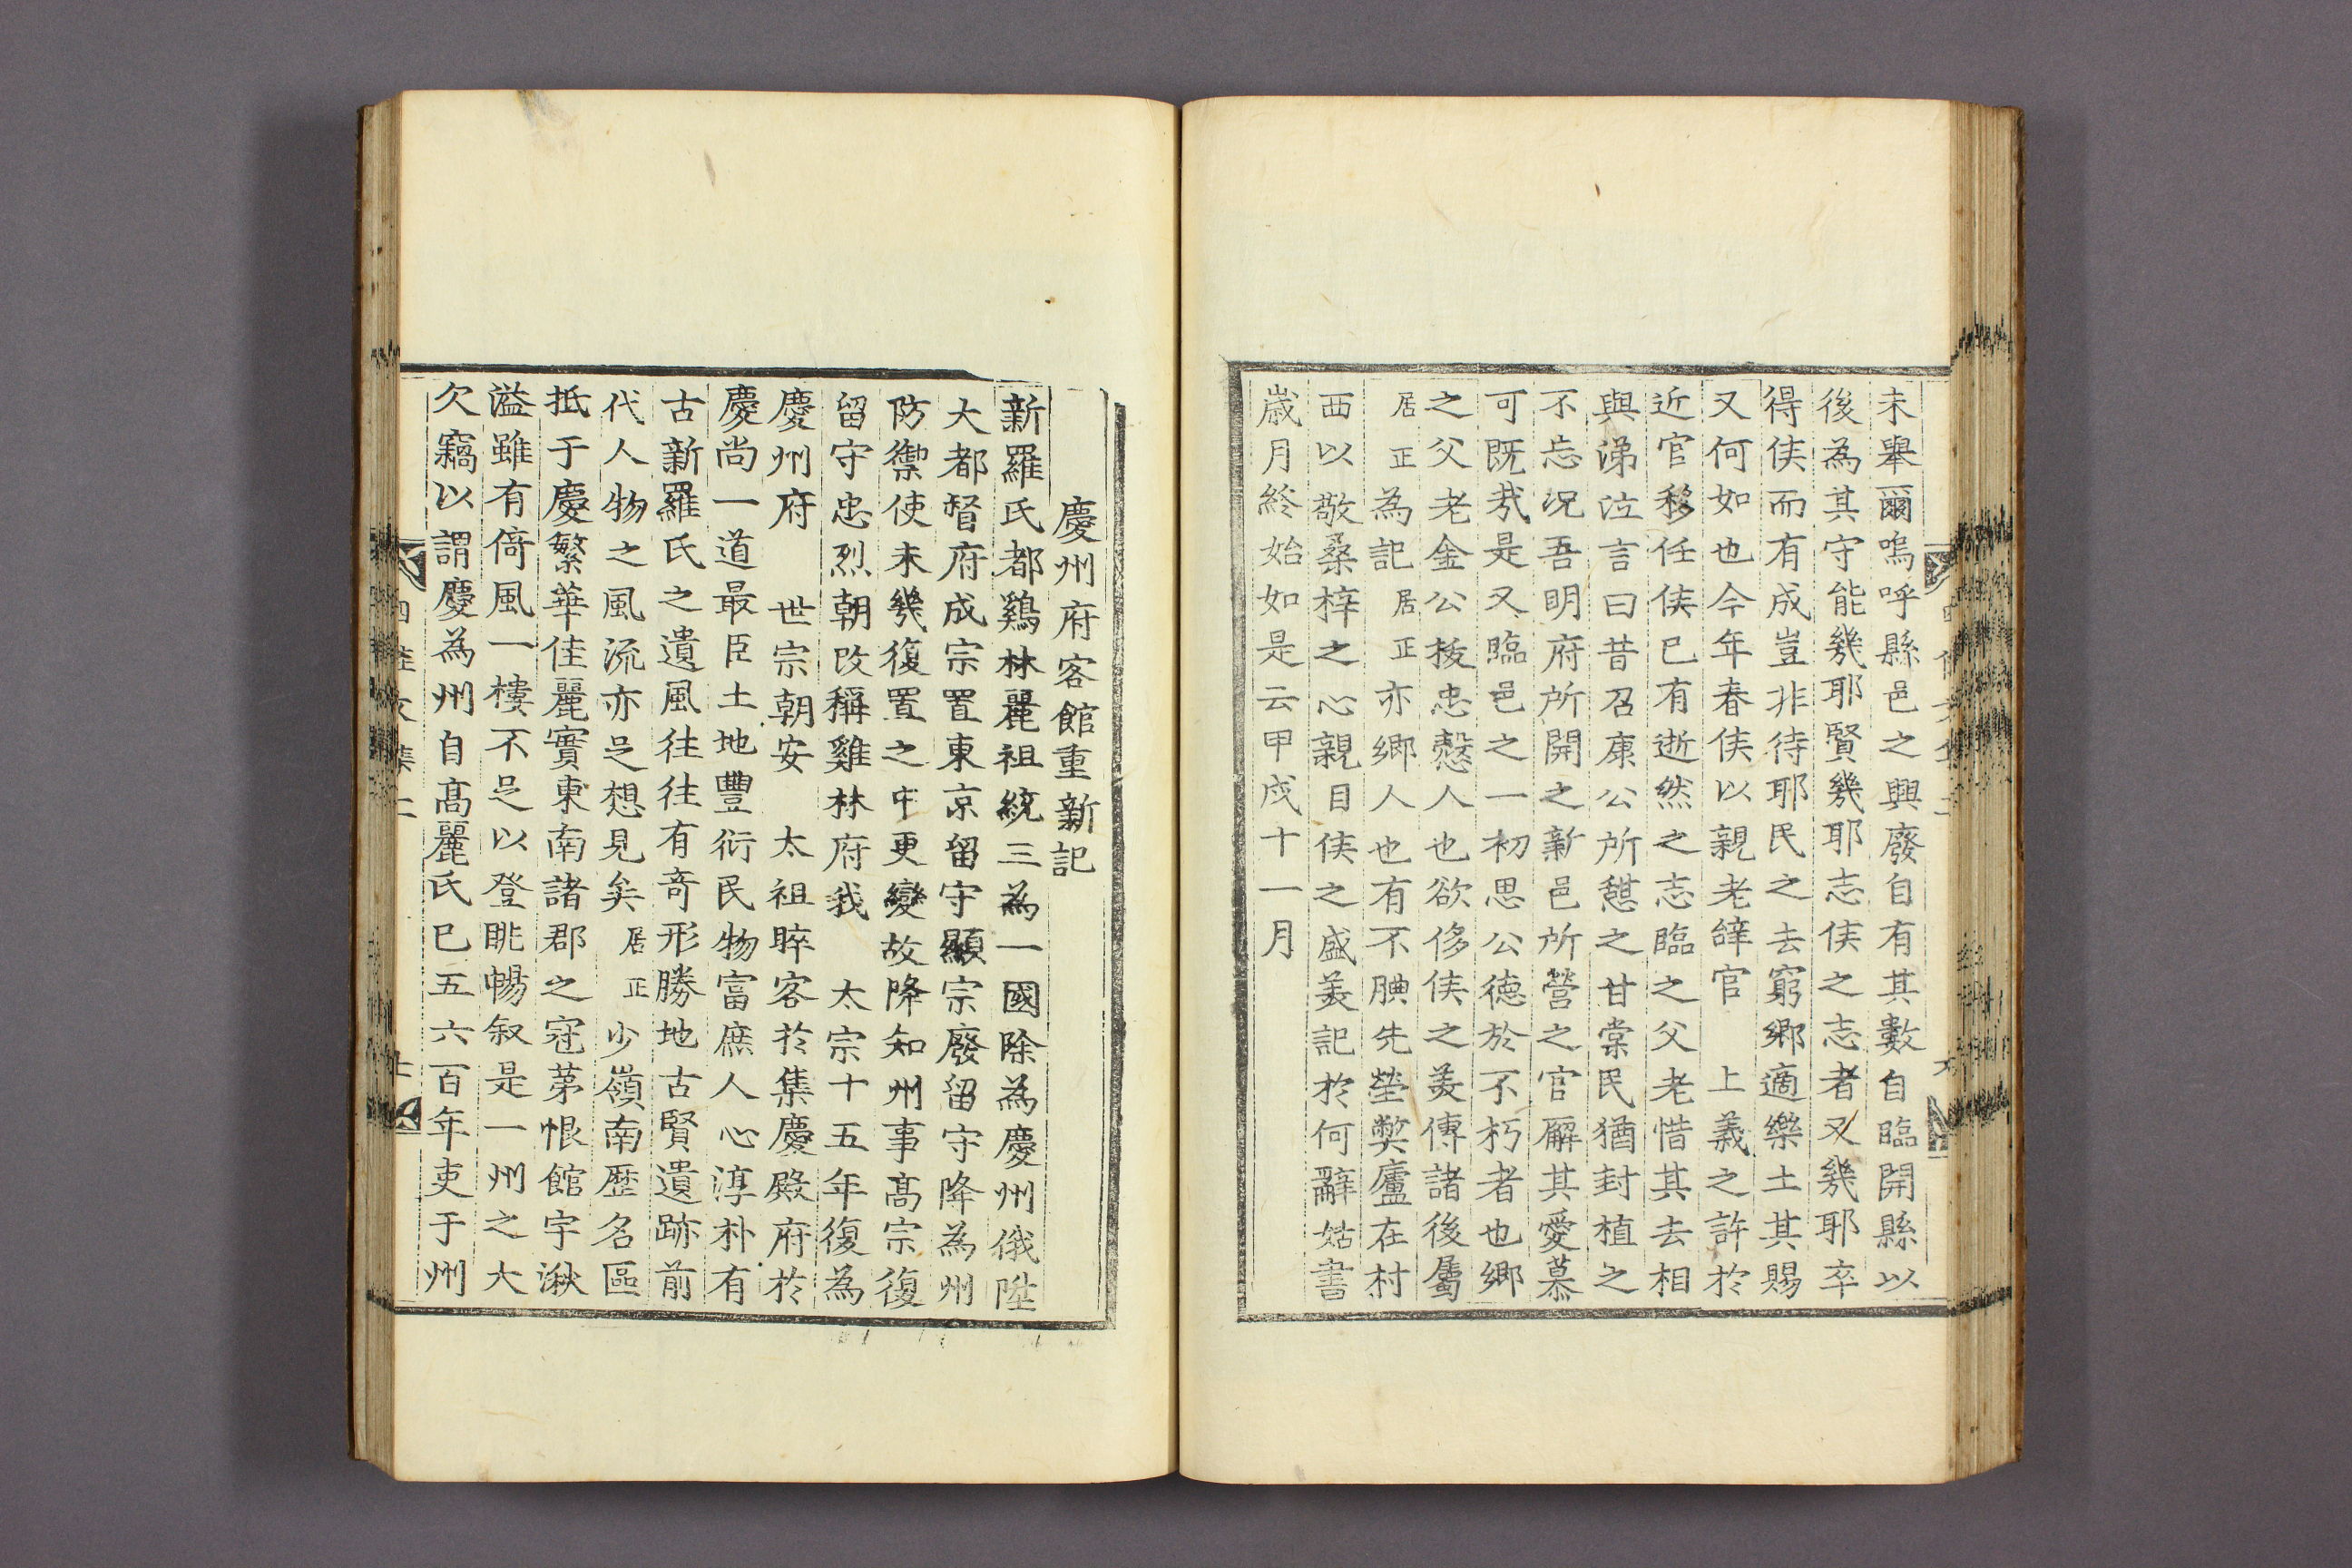 未舉爾嗚呼縣邑之興廢自有其數自臨開縣以
後為其守能幾耶賢幾耶志侯之志者又幾耶卒
得侯而有成豈非待耶民之去窮鄉適樂土其賜
又何如也今年春侯以親老辭官 上義之許於
近官移任侯已有逝然之志臨之父老惜其去相
與涕泣言曰昔召康公所憇之甘棠民猶封植之
不忘况吾明府所開之新邑所營之官廨其愛慕
可既㢤是又臨邑之一初思公德於不朽者也鄉
之父老金公梭忠慤人也欲侈侯之美傳諸後屬
居正為記居正亦鄉人也有不腆先塋弊廬在村
西以敬桑梓之心親目侯之盛美記於何辭姑書
歲月終始如是云甲戌十一月
慶州府客館重新記
新羅氏都鷄林麗祖統三為一國除為慶州俄陞
大都督府成宗置東京留守顯宗廢留守降為州
防禦使未幾復置之中更變故降知州事高宗復
留守忠烈朝改稱雞林府我 太宗十五年復為
慶州府 世宗朝安 太祖睟容於集慶殿府於
慶尚一道最臣土地豐衍民物富庶人心淳朴有
古新羅氏之遺風往往有奇形勝地古賢遺跡前
代人物之風流亦足想見矣居正少嶺南歷名區
抵于慶繁華佳麗實東南諸郡之冠苐恨館宇湫
溢雖有倚風一樓不足以登眺暢叙是一州之大
欠竊以謂慶為州自高麗氏已五六百年吏于州
四佳文集二